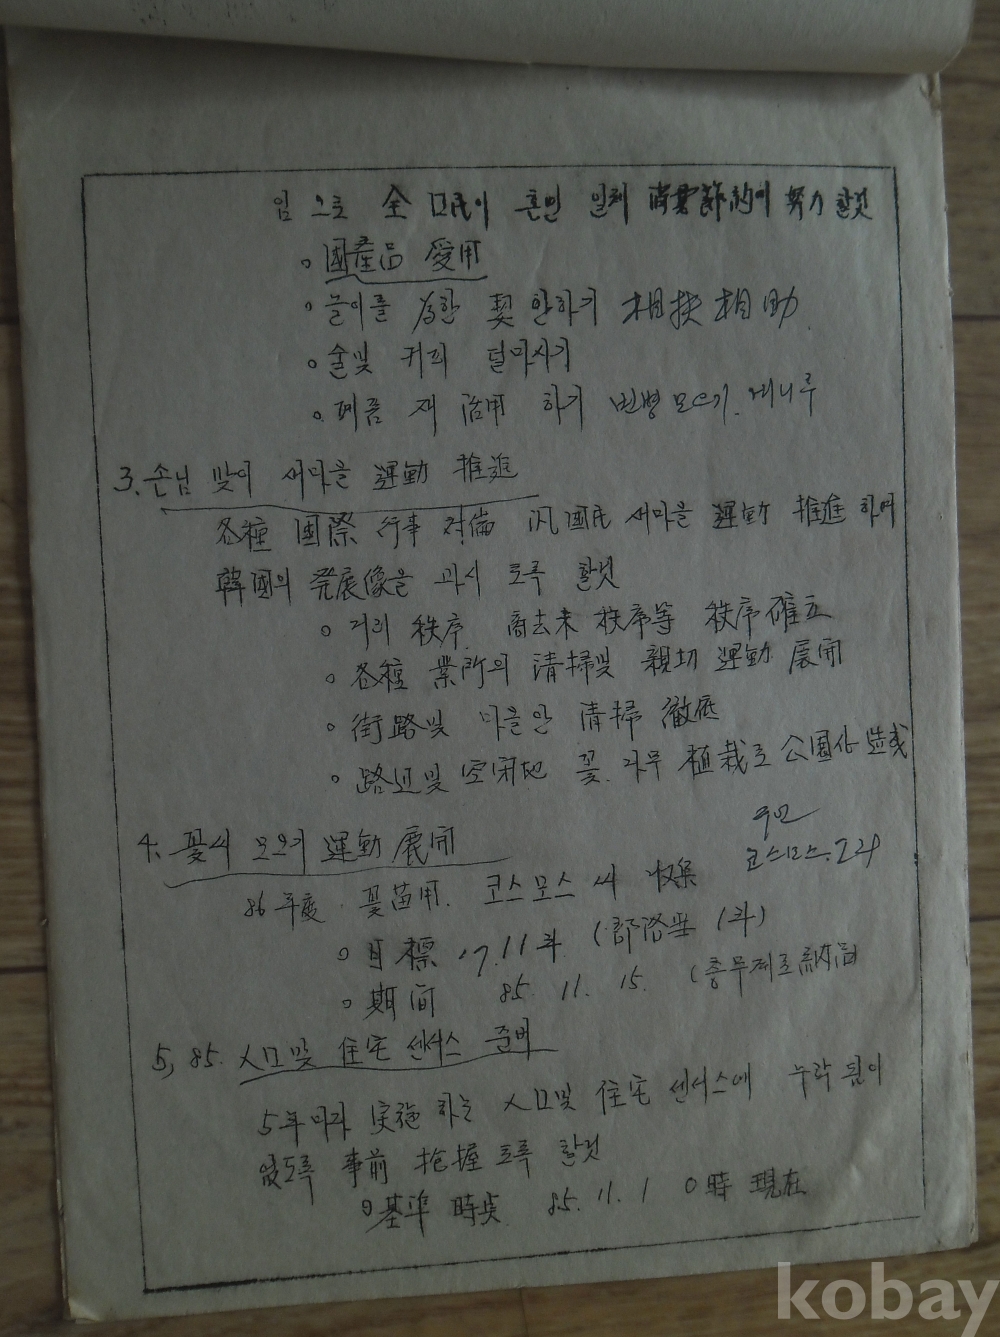 임으로 全 口民이 혼연 일체 消費節約에 努力 할것
◦ 國產品 愛用
◦ 놀이를 위한 契 안하기 相扶相助
◦ 술및 커피 덜마시기
◦ 폐품 재 活用 하기 빈병 모으기. 비니루
3. 손님 맞이 새마을 運動 推進
各種 国際 行事 対備 汎国民 새마을 運動 推進 하여
韓国의 発展像을 과시 토록 할것
◦ 거리 秩序 商去来 秩序等 秩序確立
◦ 各種 業所의 清掃및 親切 運動 展開
◦ 街路및 마을안 清掃 徹底
◦ 路辺및 空閑地 꽃. 나무 植栽로 公園化 造成
4. 꽃씨 모으기 運動 展開
코스모스.
86年度 꽃苗用. 코스모스 씨 収集
◦ 目標 (部落共 1升)
◦ 期间 85. 11. 15. (총무계로 納品)
5, 85. 人口및 住宅 센서스 준비
5年마다 実施 하는 人口및 住宅 센서스에 누락 됨이
없도록 事前 把握 토록 할것
◦ 基準 時点 85. 11. 1 0時 現在
kobay